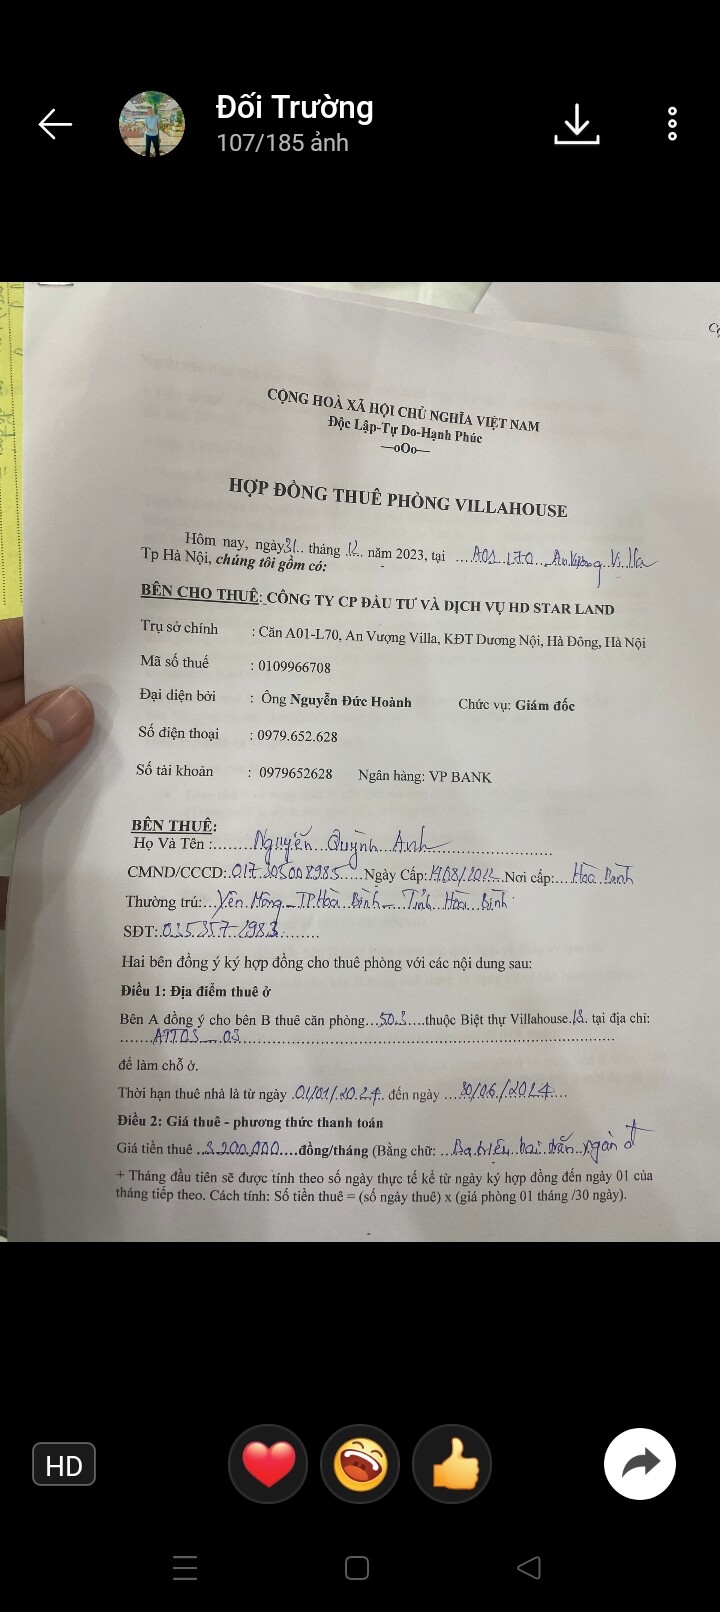 Đối Trường
107/185 ảnh
CỘNG HOÀ XÃ HỘI CHỦ NGHĨA VIỆT NAM
Độc Lập-Tự Do-Hạnh Phúc
—oOo—
HỢP ĐỒNG THUÊ PHÒNG VILLAHOUSE
Hôm nay, ngày 31.. tháng .12.. năm 2023, tại ....A01.L70...An Vượng Villa
Tp Hà Nội, chúng tôi gồm có:
BÊN CHO THUÊ: CÔNG TY CP ĐẦU TƯ VÀ DỊCH VỤ HD STAR LAND
Trụ sở chính : Căn A01-L70, An Vượng Villa, KĐT Dương Nội, Hà Đông, Hà Nội
Mã số thuế : 0109966708
Đại diện bởi : Ông Nguyễn Đức Hoành Chức vụ: Giám đốc
Số điện thoại : 0979.652.628
Số tài khoản : 0979652628 Ngân hàng: VP BANK
BÊN THUÊ:
Họ Và Tên :.......Nguyễn Quỳnh Anh..................
CMND/CCCD:.017305008985.....Ngày Cấp: /08/2022..Nơi cấp:...Hòa Bình
Thường trú:...Yên Mông - TP Hoà Bình - Tỉnh Hòa Bình
SĐT:.035357 1983.........
Hai bên đồng ý ký hợp đồng cho thuê phòng với các nội dung sau:
Điều 1: Địa điểm thuê ở
Bên A đồng ý cho bên B thuê căn phòng...503....thuộc Biệt thự Villahouse.18. tại địa chỉ:
.......ATT03 - 03..........................................................
để làm chỗ ở.
Thời hạn thuê nhà là từ ngày .01/01/2024.. đến ngày ....30/06/2024....
Điều 2: Giá thuê - phương thức thanh toán
Giá tiền thuê ..3200.000....đồng/tháng (Bằng chữ: ..Ba triệu hai trăm ngàn đ
+ Tháng đầu tiên sẽ được tính theo số ngày thực tế kể từ ngày ký hợp đồng đến ngày 01 của
tháng tiếp theo. Cách tính: Số tiền thuê = (số ngày thuê) x (giá phòng 01 tháng /30 ngày).
HD